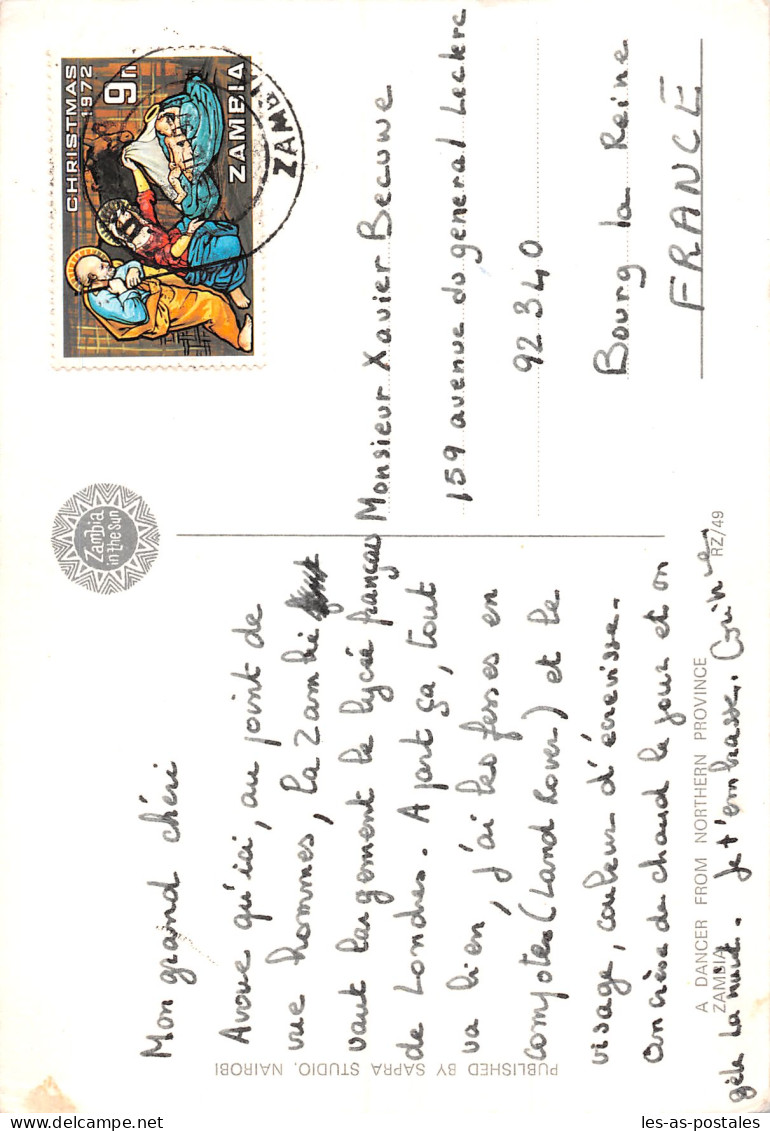 CHRISTMAS
1972
9n
ZAMBIA
ZAMB
Zambia
in the Sun
Mon grand chéri
Avoue qu'ici, au point de
vue hommes, la Zambie
vaut largement le lycée français
de Londres. A part ça, tout
va bien, j'ai les fesses en
compote (Land Rover) et le
visage, couleur d'écrevisse.
On crève de chaud le jour et on
gèle la nuit. Je t'embrasse.
Monsieur Xavier Becuwe
159 avenue du general Leclerc
92340
Bourg la Reine
FRANCE
A DANCER FROM NORTHERN PROVINCE
ZAMBIA
RZ/49
PUBLISHED BY SAPRA STUDIO, NAIROBI
les-as-postales